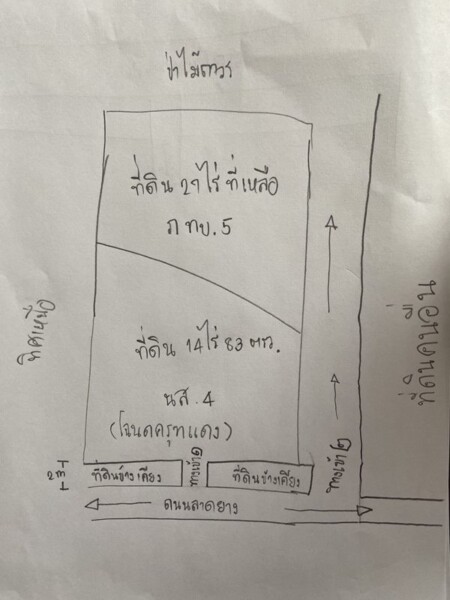 ป่าไม้ถาวร
ที่ดิน 27 ไร่ ที่เหลือ
ภ ทบ. 5
ที่ดิน 14 ไร่ 83 ตรว.
นส. 4
(โฉนดครุฑแดง)
ทิศเหนือ
ที่ดินคนอื่น
2m
ที่ดินข้างเคียง
ทางเข้า ๑
ที่ดินข้างเคียง
ทางเข้า ๒
ถนนลาดยาง